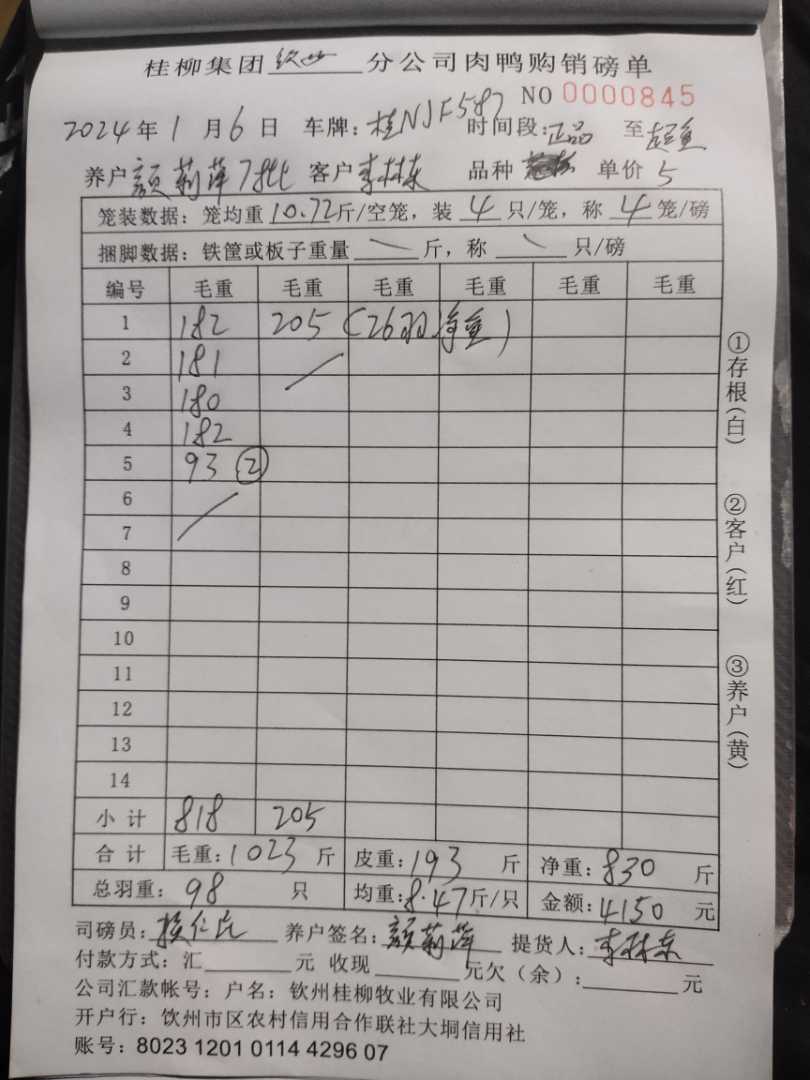 桂柳集团钦州分公司肉鸭购销磅单
NO 0000845
2024年1月6日 车牌:桂NJF587 时间段:正品 至超重
养户 颜莉萍7批 客户 李林东 品种 单价 5
笼装数据:笼均重10.72斤/空笼,装4只/笼,称4笼/磅
捆脚数据:铁筐或板子重量 斤,称 只/磅
编号 毛重 毛重 毛重 毛重 毛重 毛重
1 182 205(26羽净重)
2 181
3 180
4 182
5 93 ②
6
7
8
9
10
11
12
13
14
小计 818 205
合计 毛重:1023斤 皮重:193斤 净重:830斤
总羽重:98只 均重:8.47斤/只 金额:4150元
司磅员: 养户签名:颜莉萍 提货人:李林东
付款方式:汇 元 收现 元欠(余): 元
公司汇款帐号:户名:钦州桂柳牧业有限公司
开户行:钦州市区农村信用合作联社大垌信用社
账号:8023 1201 0114 4296 07
①存根(白)
②客户(红)
③养户(黄)